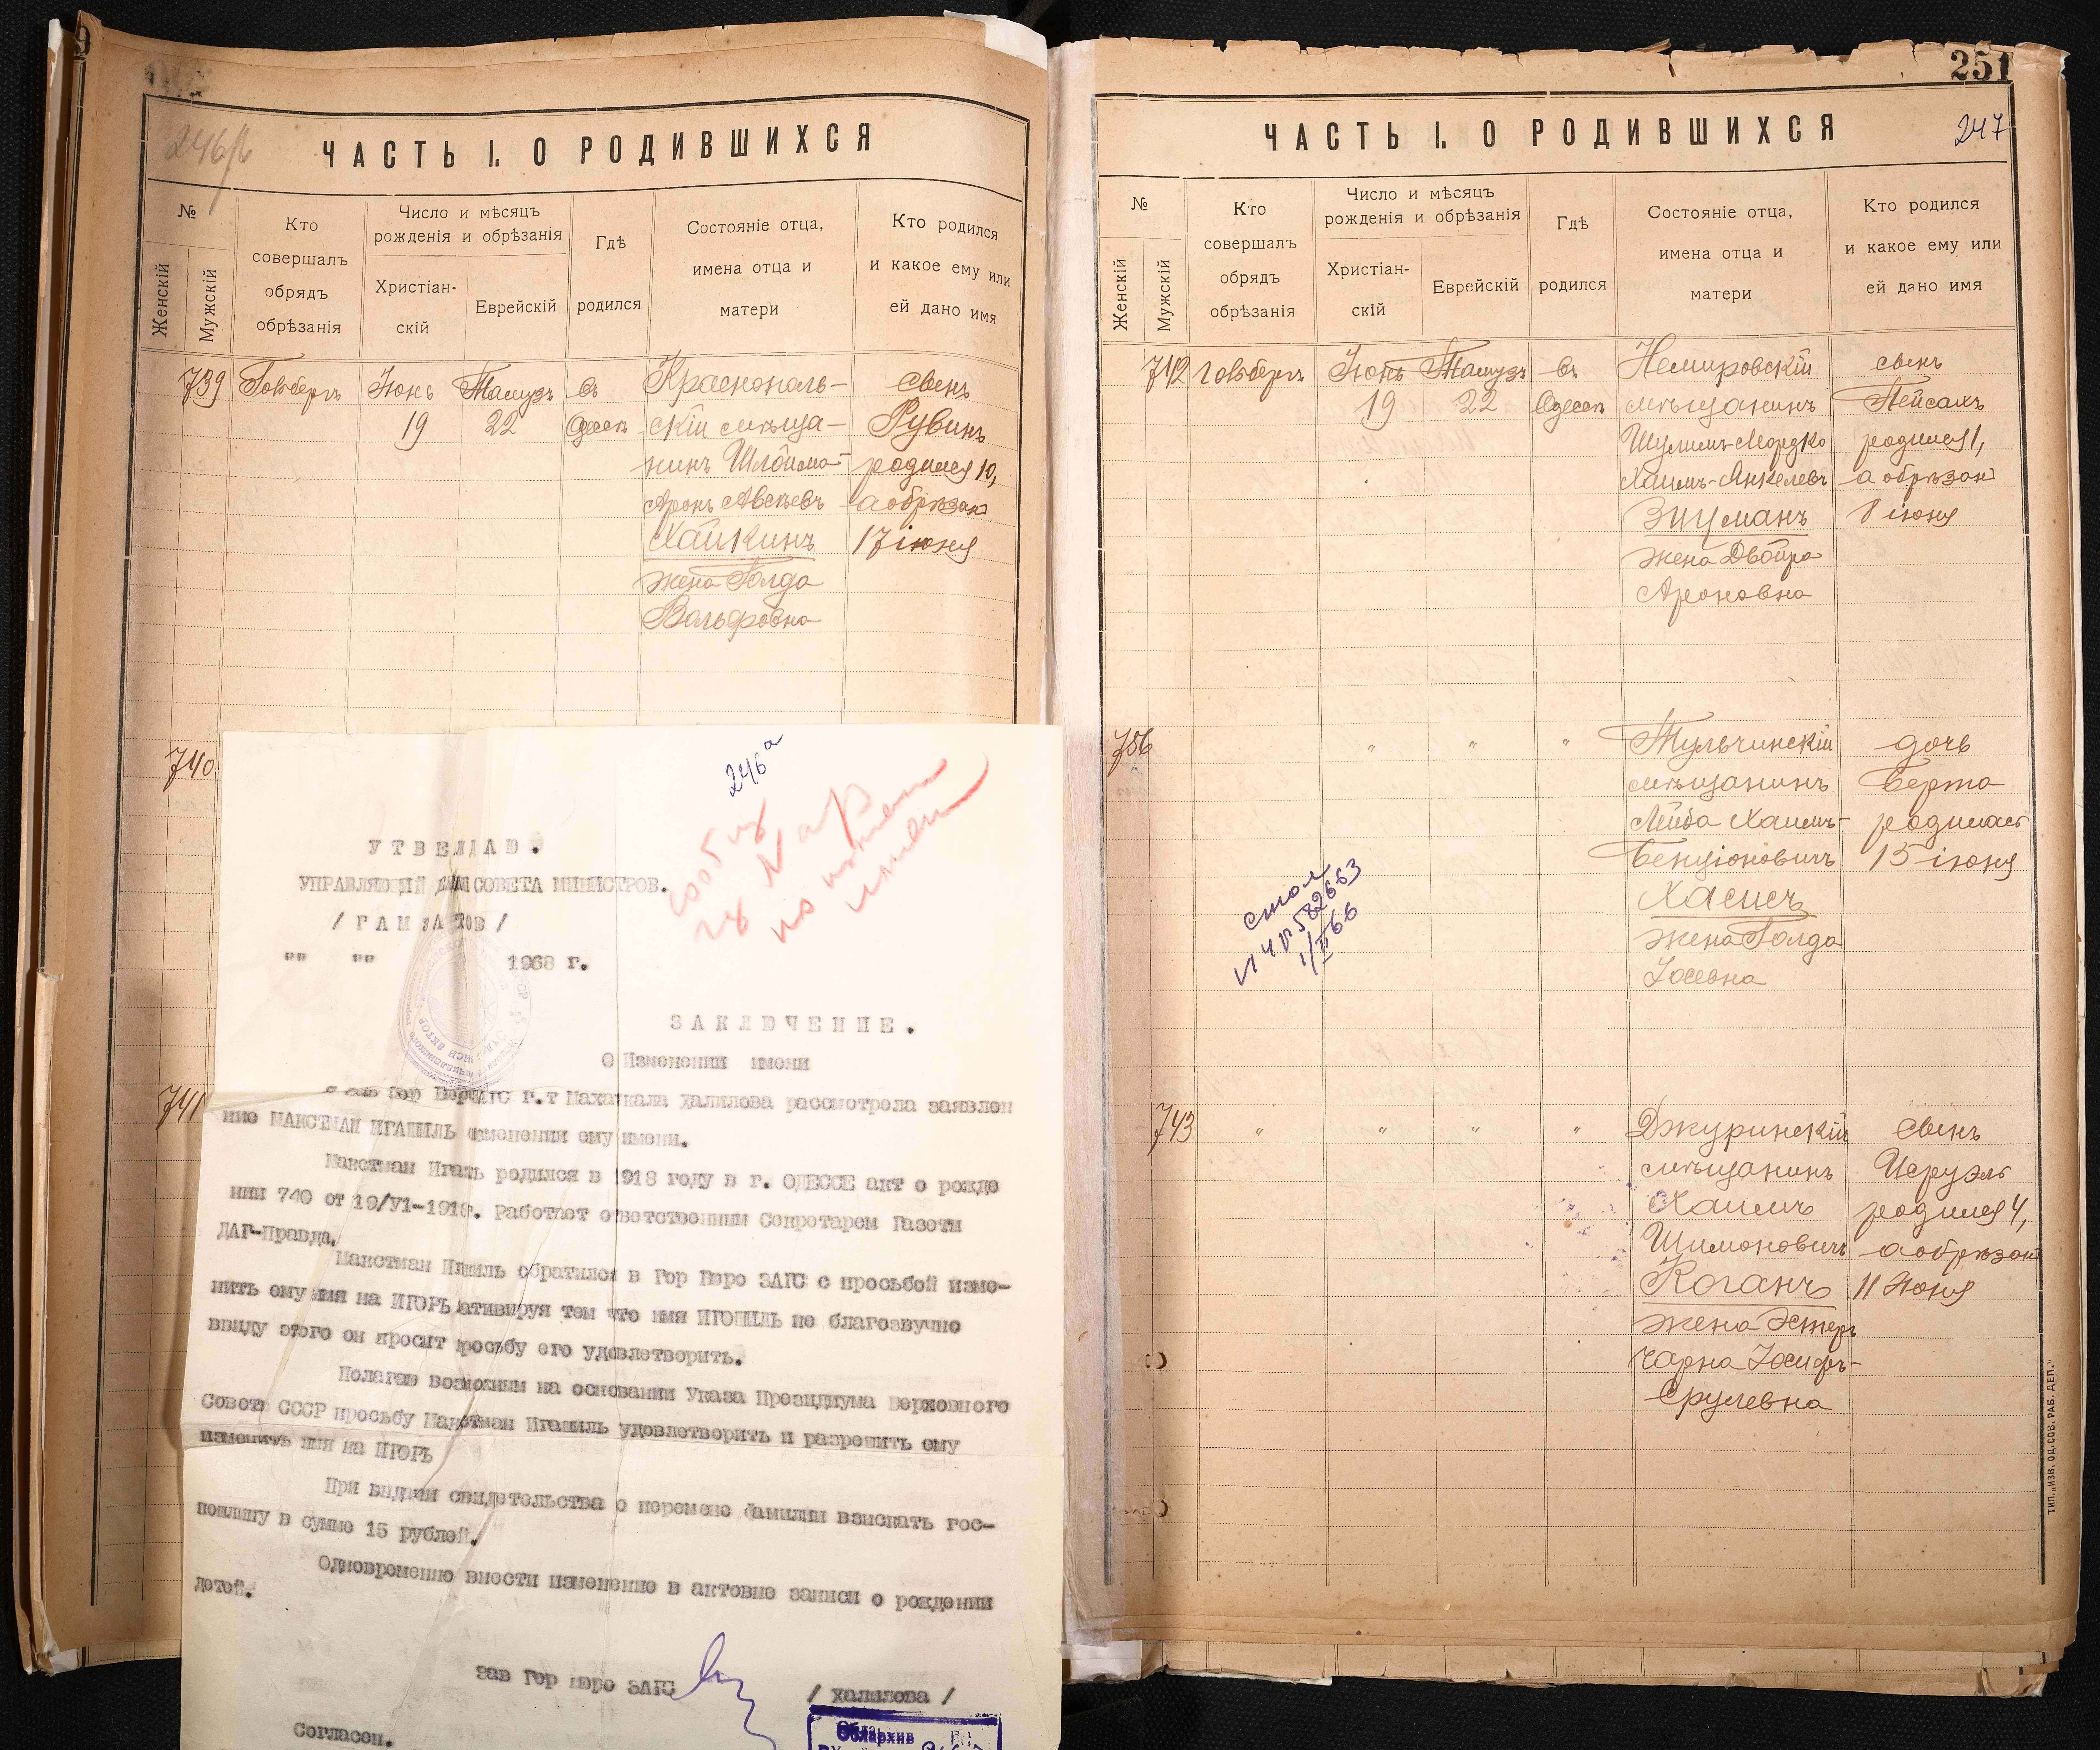 246/б
ЧАСТЬ I. О РОДИВШИХСЯ
№
Женскій
Мужскій
Кто
совершалъ
обрядъ
обрѣзанія
Число и мѣсяцъ
рожденія и обрѣзанія
Христіан-
скій
Еврейскій
Гдѣ
родился
Состояніе отца,
имена отца и
матери
Кто родился
и какое ему или
ей дано имя
739 Гольбергъ Іюнь Тамузъ въ Краснополь- сынъ
19 22 Одессѣ скій мѣща- Рувинъ
нинъ Шлойма- родился 10,
Аронъ Авсѣевъ а обрѣзан
Хайкинъ 17 іюня
жена Голда
Вольфовна
740
741
246а
сообщ
УТВЕЖДАЮ.
УПРАВЛЯЮЩИЙ ДЕЛАМИ СОВЕТА МИНИСТРОВ.
/ ГАМЗАТОВ /
"" "" 1968 г.
ЗАКЛЮЧЕНИЕ.
О Изменении имени
Я зав Гор Бюро ЗАГС г.т Махачкала Халилова рассмотрела заявлен
ние МАКСТМАН ИГАШИЛЬ изменении ему имени.
Макстман Игаль родился в 1918 году в г. ОДЕССЕ акт о рожде
нии 740 от 19/У1-1918г. Работает ответственным Секретарем Газеты
ДАГ-Правда.
Макстман Игашиль обратился в Гор Бюро ЗАГС с просьбой изме-
нить ему имя на ИГОРЬ мативируя тем что имя ИГОШИЛЬ не благозвучно
ввиду этого он просит просьбу его удовлетворить.
Полагаю возможным на основании Указа Президиума Верховного
Совета СССР просьбу Макстман Игашиль удовлетворить и разрешить ему
изменить имя на ИГОРЬ
При выдачи свидетельства о перемене фамилии взискать гос-
пошлину в сумме 15 рублей.
Одновременно внести изменение в актовые записи о рождении
детей.
Зав Гор Бюро ЗАГС / Халилова /
Согласен.
Облархив
251
247
ЧАСТЬ I. О РОДИВШИХСЯ
№
Женскій
Мужскій
Кто
совершалъ
обрядъ
обрѣзанія
Число и мѣсяцъ
рожденія и обрѣзанія
Христіан-
скій
Еврейскій
Гдѣ
родился
Состояніе отца,
имена отца и
матери
Кто родился
и какое ему или
ей дано имя
742 Гольбергъ Іюнь Тамузъ въ Немировскій сынъ
19 22 Одессѣ мѣщанинъ Пейсахъ
Шулимъ-Мордко родился 1,
Хаимъ-Янкелевъ а обрѣзан
Зицманъ 8 іюня
жена Двойра
Ароновна
756 " " " Тульчинскій дочь
мѣщанинъ Берта
Лейба Хаимъ- родилась
Бенціоновичъ 15 іюня
Хасисъ
жена Голда
Іосевна
стол
VI ЧР 582663
1/II 66
743 " " " " Джуринскій сынъ
мѣщанинъ Исруэль
Хаимъ родился 4,
Шимоновичъ а обрѣзан
Коганъ 11 Іюня
жена Эстеръ
Чарна Іосифъ-
Срулевна
ТИП. „ИЗВ. ОД. СОВ. РАБ. ДЕП."